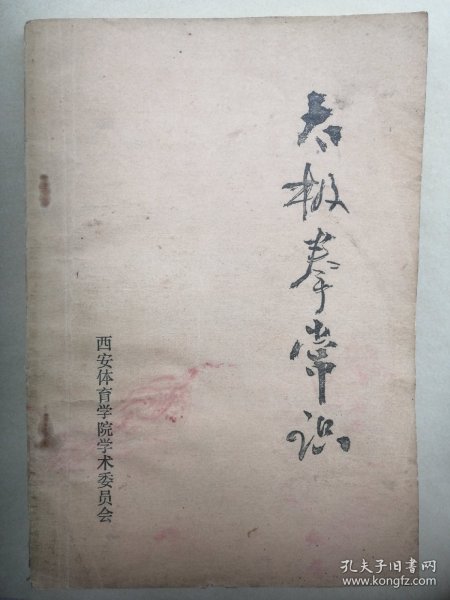 太极拳常识
西安体育学院学术委员会
孔夫子旧书网
www.kongfz.com